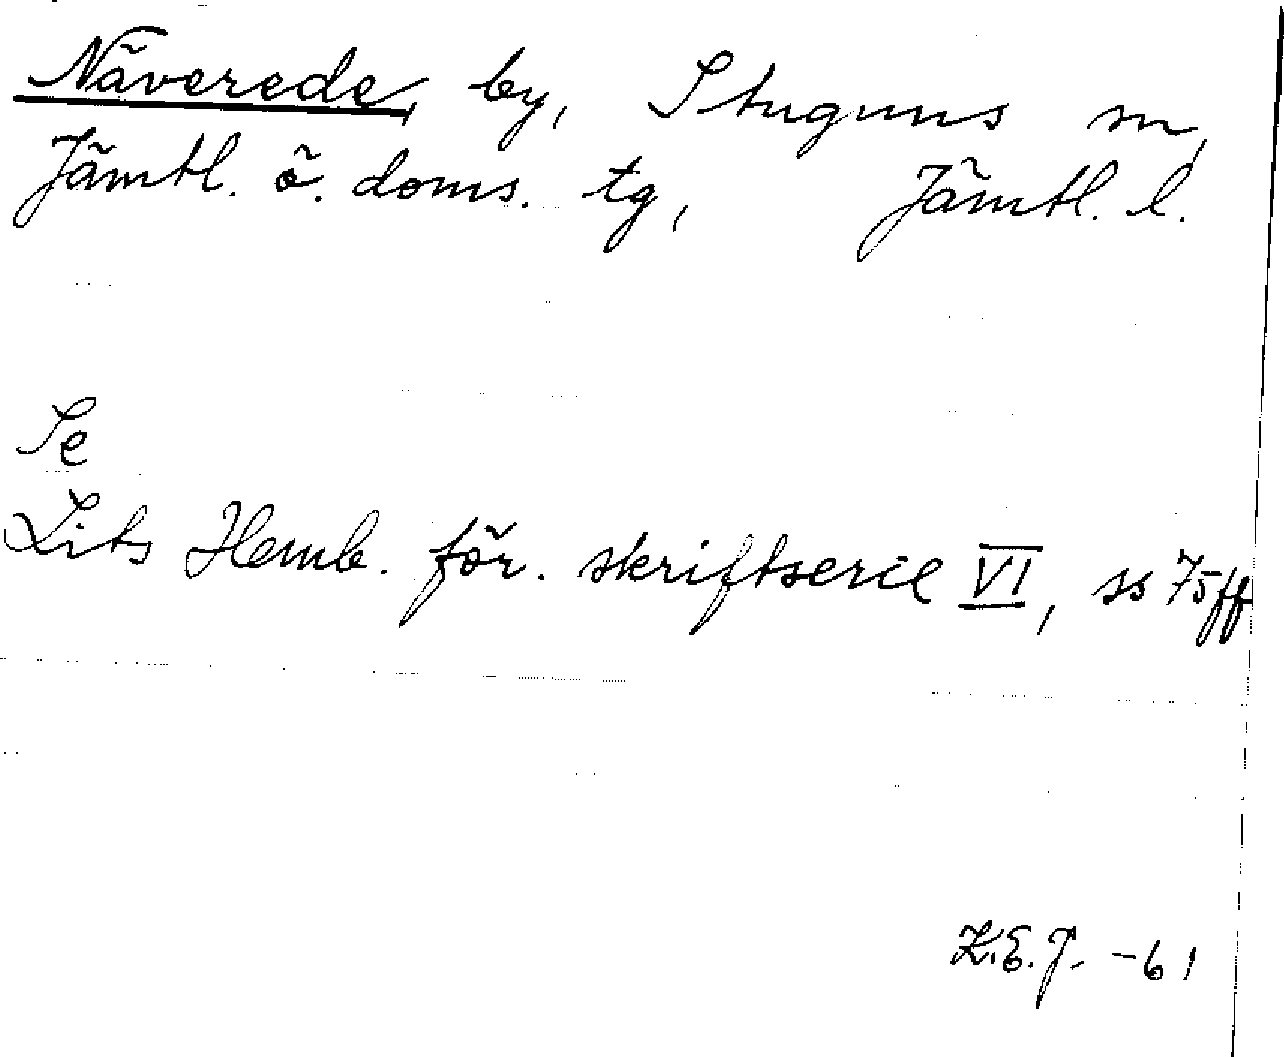 Näverede, by, Stuguns sn,
Jämtl. ö. doms. tg, Jämtl. l.
Se
Lits Hemb. för. skriftserie VI, ss 75ff
K.E.J. -61